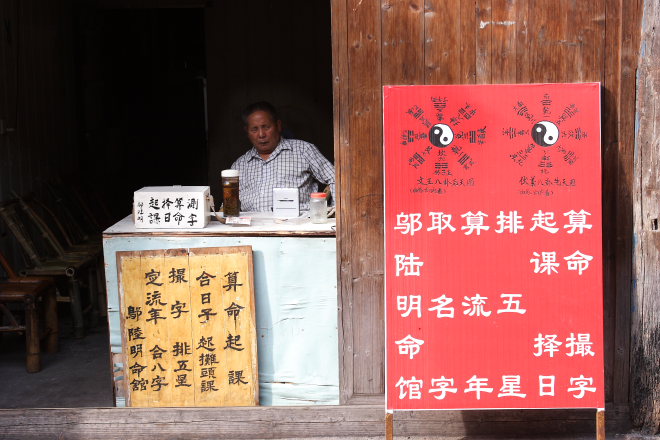 测字
算命
择日
起課
算命起課
合日子 起攤頭課
撮字 排五星
定流年 合八字
鄔陸明命館
伏羲八卦先天图
文王八卦后天图
算命 撮字
起课 择日
排五星
算流年
取名字
邬陆明命馆